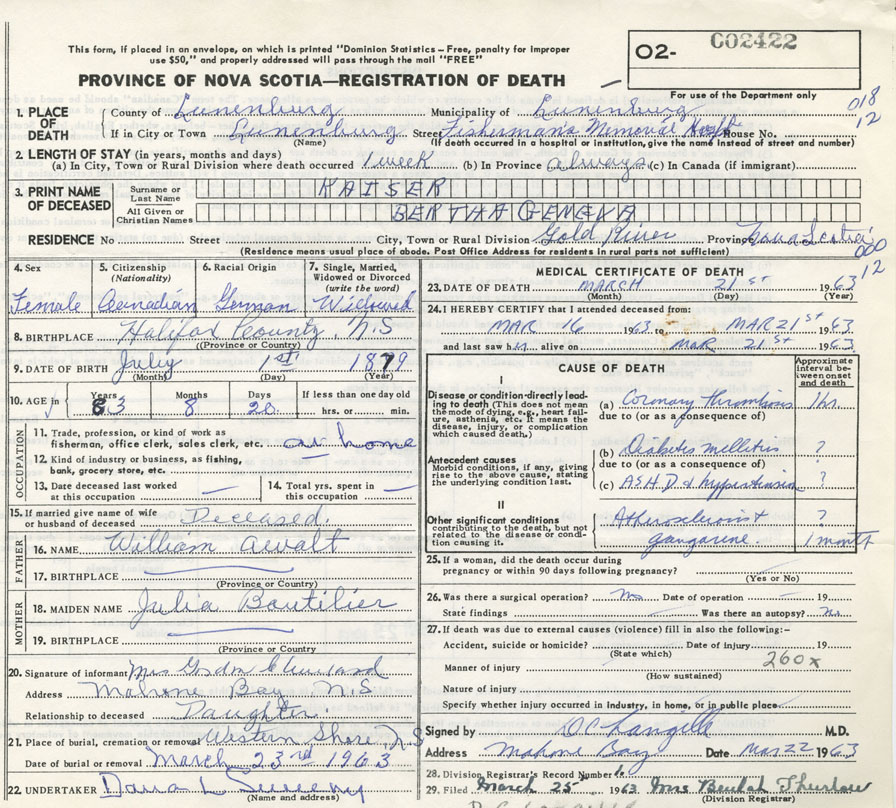 This form, if placed in an envelope, on which is printed "Dominion Statistics – Free, penalty for improper
use $50," and properly addressed will pass through the mail "FREE"
PROVINCE OF NOVA SCOTIA—REGISTRATION OF DEATH
O2- C02422
For use of the Department only
018
12
1. PLACE OF DEATH County of Lunenburg Municipality of Lunenburg
If in City or Town Lunenburg Street Fishermans Memorial Hospt House No.
(Name) (If death occurred in a hospital or institution, give the name instead of street and number)
2. LENGTH OF STAY (in years, months and days)
(a) In City, Town or Rural Division where death occurred 1 week (b) In Province always (c) In Canada (if immigrant)
3. PRINT NAME OF DECEASED Surname or Last Name KAISER
All Given or Christian Names BERTHA GENEVA
RESIDENCE No Street City, Town or Rural Division Gold River Province Nova Scotia
(Residence means usual place of abode. Post Office Address for residents in rural parts not sufficient)
000
12
4. Sex Female
5. Citizenship (Nationality) Canadian
6. Racial Origin German
7. Single, Married, Widowed or Divorced (write the word) Widowed
8. BIRTHPLACE Halifax County N.S
(Province or Country)
9. DATE OF BIRTH July 1st 1879
(Month) (Day) (Year)
10. AGE in Years 83 Months 8 Days 20 If less than one day old
hrs. or min.
OCCUPATION
11. Trade, profession, or kind of work as
fisherman, office clerk, sales clerk, etc. at home
12. Kind of industry or business, as fishing,
bank, grocery store, etc.
13. Date deceased last worked
at this occupation —
14. Total yrs. spent in
this occupation —
15. If married give name of wife
or husband of deceased Deceased.
FATHER
16. NAME William Awalt
17. BIRTHPLACE
(Province or Country)
MOTHER
18. MAIDEN NAME Julia Boutilier
19. BIRTHPLACE
(Province or Country)
20. Signature of informant Mrs Gordon Cleveland
Address Mahone Bay N.S
Relationship to deceased Daughter.
21. Place of burial, cremation or removal Western Shore N S
Date of burial or removal March 23rd 1963
22. UNDERTAKER Dana L Sweeny
(Name and address)
MEDICAL CERTIFICATE OF DEATH
23. DATE OF DEATH MARCH 21st 1963
(Month) (Day) (Year)
24. I HEREBY CERTIFY that I attended deceased from:
MAR 16 1963 to MAR 21st 1963
and last saw h alive on MAR 21st 1963
CAUSE OF DEATH
Approximate interval between onset and death
I
Disease or condition-directly leading to death (This does not mean
the mode of dying, e.g., heart failure, asthenia, etc. It means the
disease, injury, or complication
which caused death).
(a) Coronary thrombosis 1 hr
due to (or as a consequence of)
Antecedent causes
Morbid conditions, if any, giving
rise to the above cause, stating
the underlying condition last.
(b) Diabetes mellitus ?
due to (or as a consequence of)
(c) ASHD & hypertension ?
II
Other significant conditions
contributing to the death, but not
related to the disease or condition causing it.
Atherosclerosis & ?
gangarine. 1 month
25. If a woman, did the death occur during
pregnancy or within 90 days following pregnancy?
(Yes or No)
26. Was there a surgical operation? no Date of operation — 19
State findings Was there an autopsy? no
27. If death was due to external causes (violence) fill in also the following:–
Accident, suicide or homicide? Date of injury 19
(State which)
260x
Manner of injury
(How sustained)
Nature of injury
Specify whether injury occurred in industry, in home, or in public place
Signed by D C Langille M.D.
Address Mahone Bay Date Mar 22 1963
28. Division Registrar's Record Number
29. Filed March 25 1963 Mrs Beulah Thurlow
(Division Registrar)